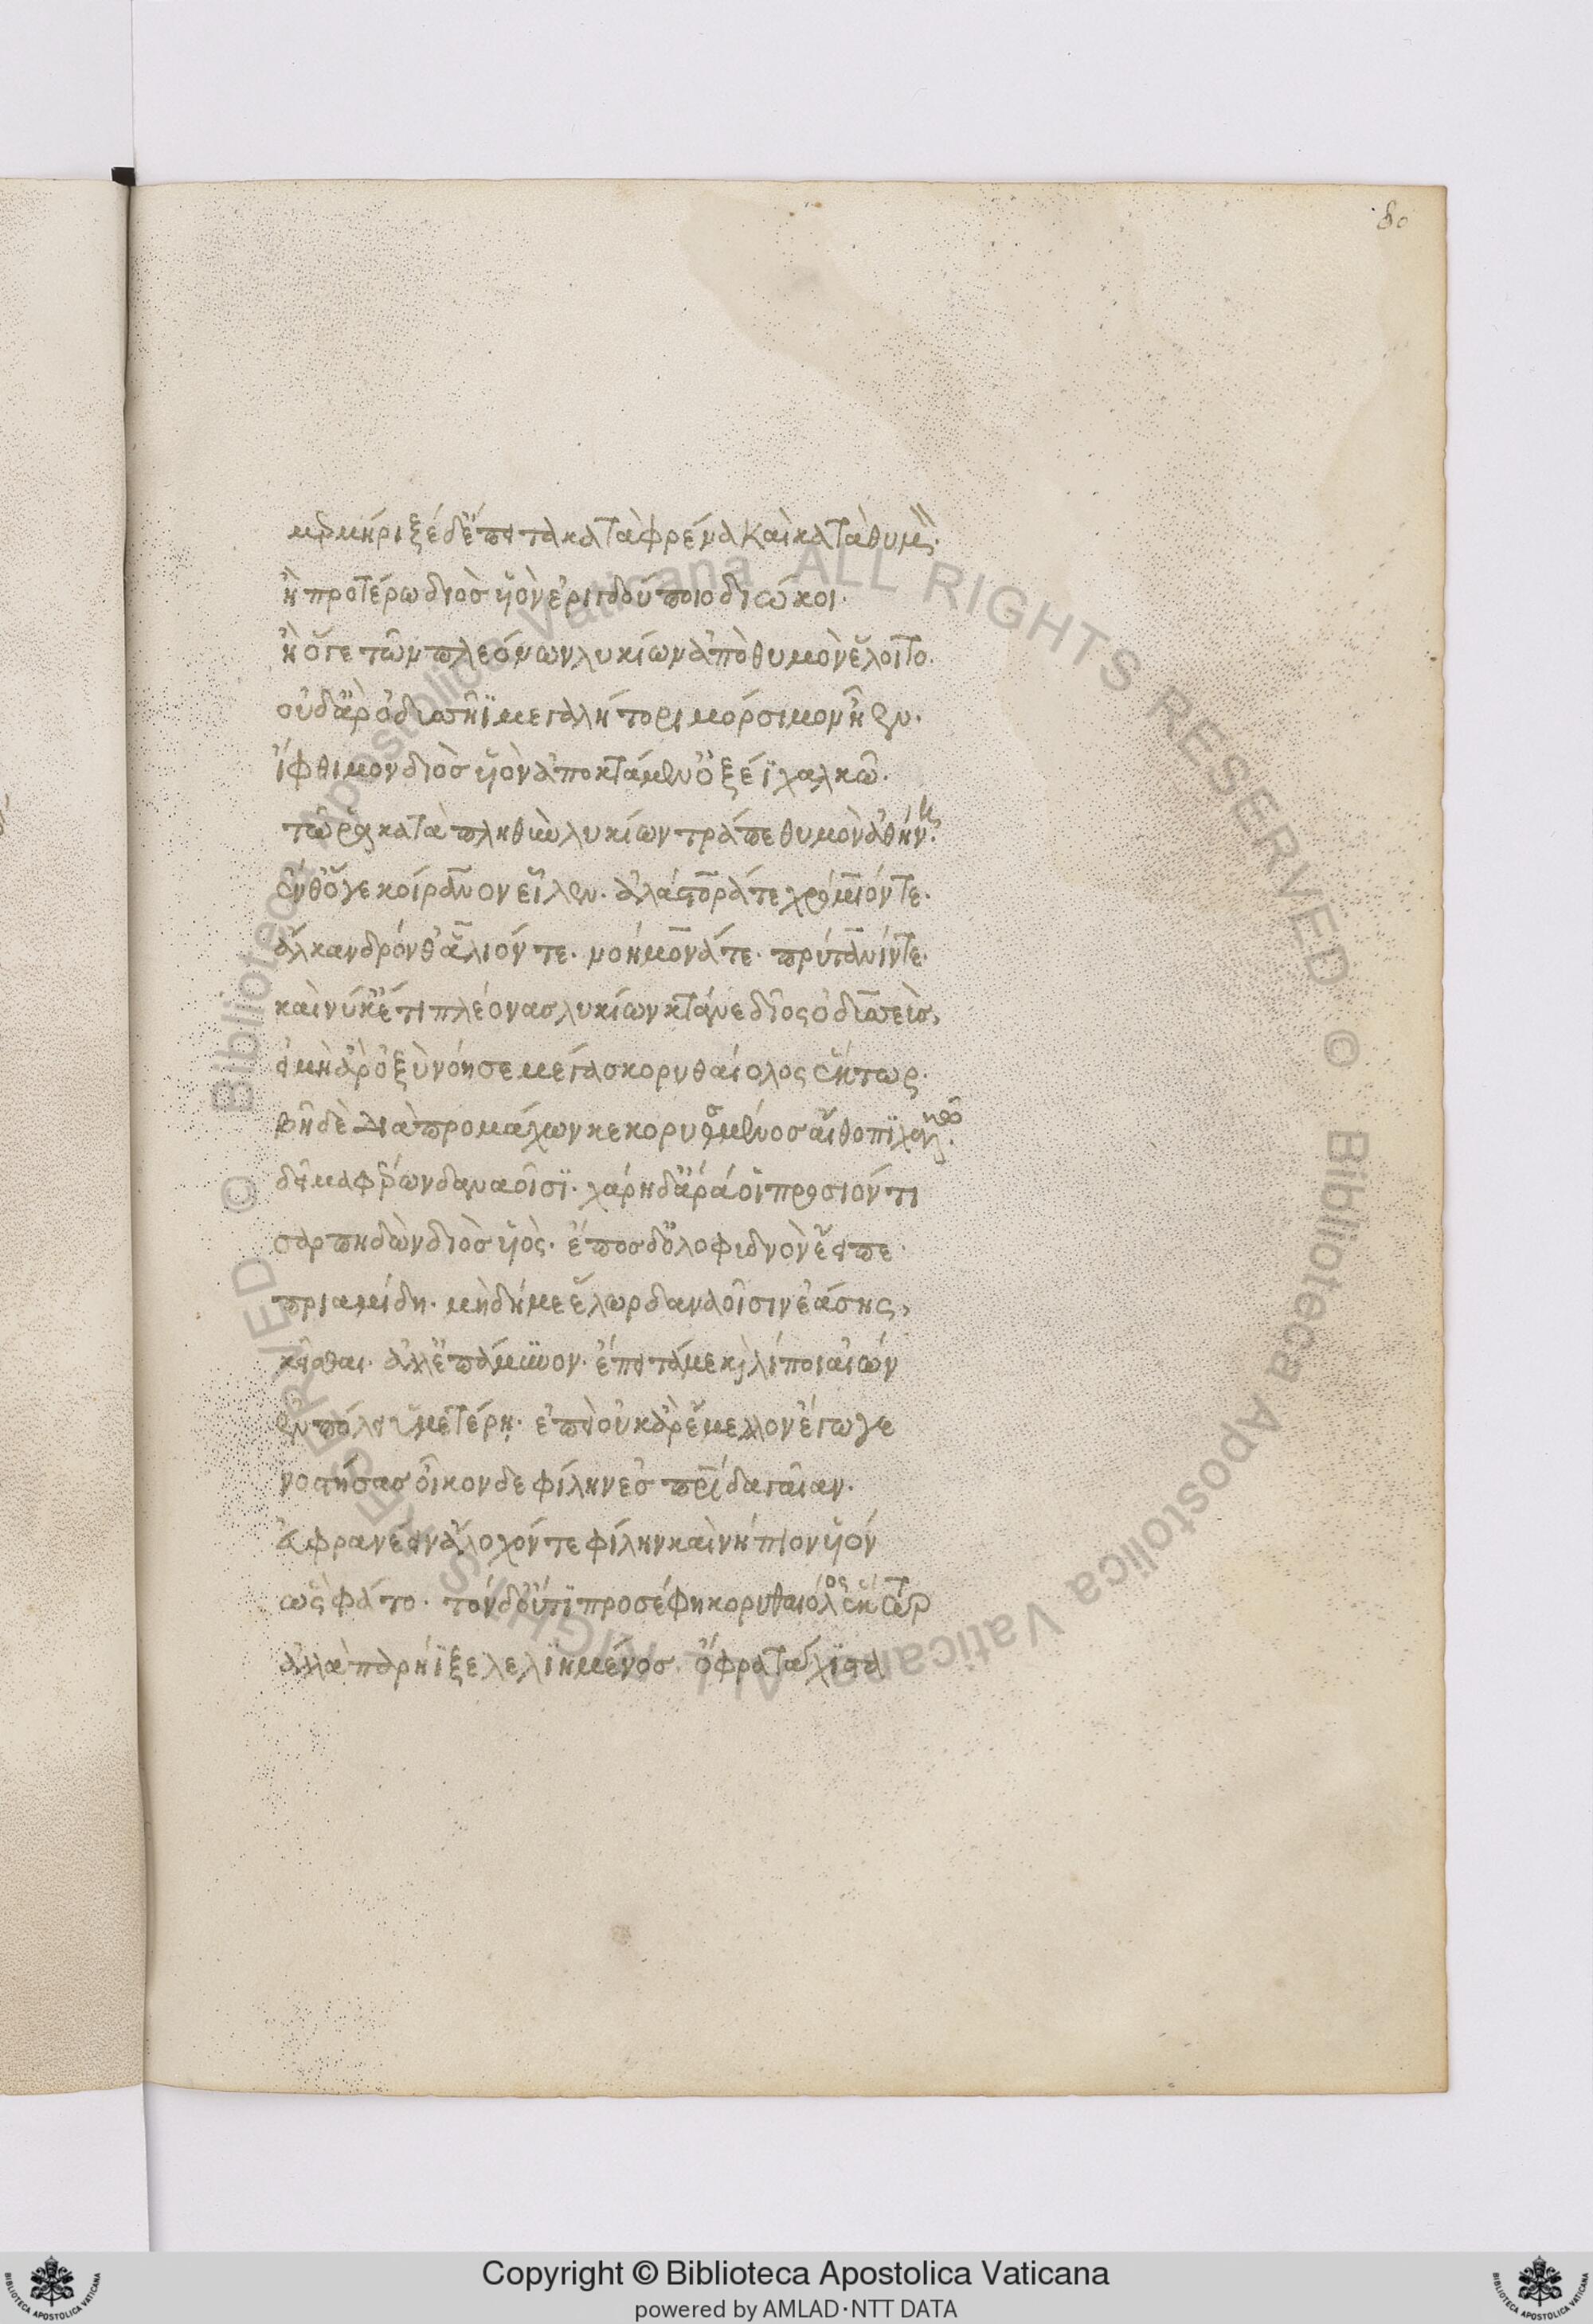 80
μερμήριξε δ' ἔπειτα κατὰ φρένα καὶ κατὰ θυμόν·
ἢ προτέρω διὸς υἱὸν ἐριγδούποιο διώκοι·
ἢ ὅγε τῶν πλεόνων λυκίων ἀπὸ θυμὸν ἕλοιτο.
οὐδ' ἄρ' ὀδυσσῆϊ μεγαλήτορι μόρσιμον ἦεν·
ἴφθιμον διὸς υἱὸν ἀποκτάμεν ὀξέϊ χαλκῶ·
τῶ ῥα κατὰ πληθὺν λυκίων τράπε θυμὸν ἀθήνη·
ἔνθ' ὅγε κοίρανον εἷλεν· ἀλάστορά τε χρομίον τε·
ἄλκανδρόν θ' ἅλιόν τε· νοήμονά τε· πρύτανίν τε·
καὶ νύ κ' ἔτι πλέονας λυκίων κτάνε δῖος ὀδυσσεὺς,
εἰ μὴ ἄρ' ὀξὺ νόησε μέγας κορυθαίολος ἕκτωρ·
βῆ δὲ διὰ προμάχων κεκορυθμένος αἴθοπι χαλκῶ
δεῖμα φέρων δαναοῖσϊ· χάρη δ' ἄρα οἱ προσιόντι
σαρπηδὼν διὸς υἱός· ἔπος δ' ὀλοφυδνὸν ἔειπε·
πριαμίδη· μὴ δή με ἕλωρ δαναοῖσιν ἐάσης,
κεῖσθαι· ἀλλ' ἐπάμυνον· ἔπειτά με καὶ λίποι αἰών
ἐν πόλει ὑμετέρη· ἐπεὶ οὐκ ἄρ' ἔμελλον ἔγωγε
νοστήσας οἶκον δε φίλην ἐς πατρίδα γαῖαν·
εὐφρανέειν ἄλοχόν τε φίλην καὶ νήπιον υἱόν
ὣς φάτο· τὸν δ' οὔτϊ προσέφη κορυθαιόλος ἕκτωρ
ἀλλὰ παρήϊξε λελϊημένος ὄφρα τάχϊστα
Copyright © Biblioteca Apostolica Vaticana
powered by AMLAD·NTT DATA
© Biblioteca Apostolica Vaticana ALL RIGHTS RESERVED © Biblioteca Apostolica Vaticana ALL RIGHTS RESERVED